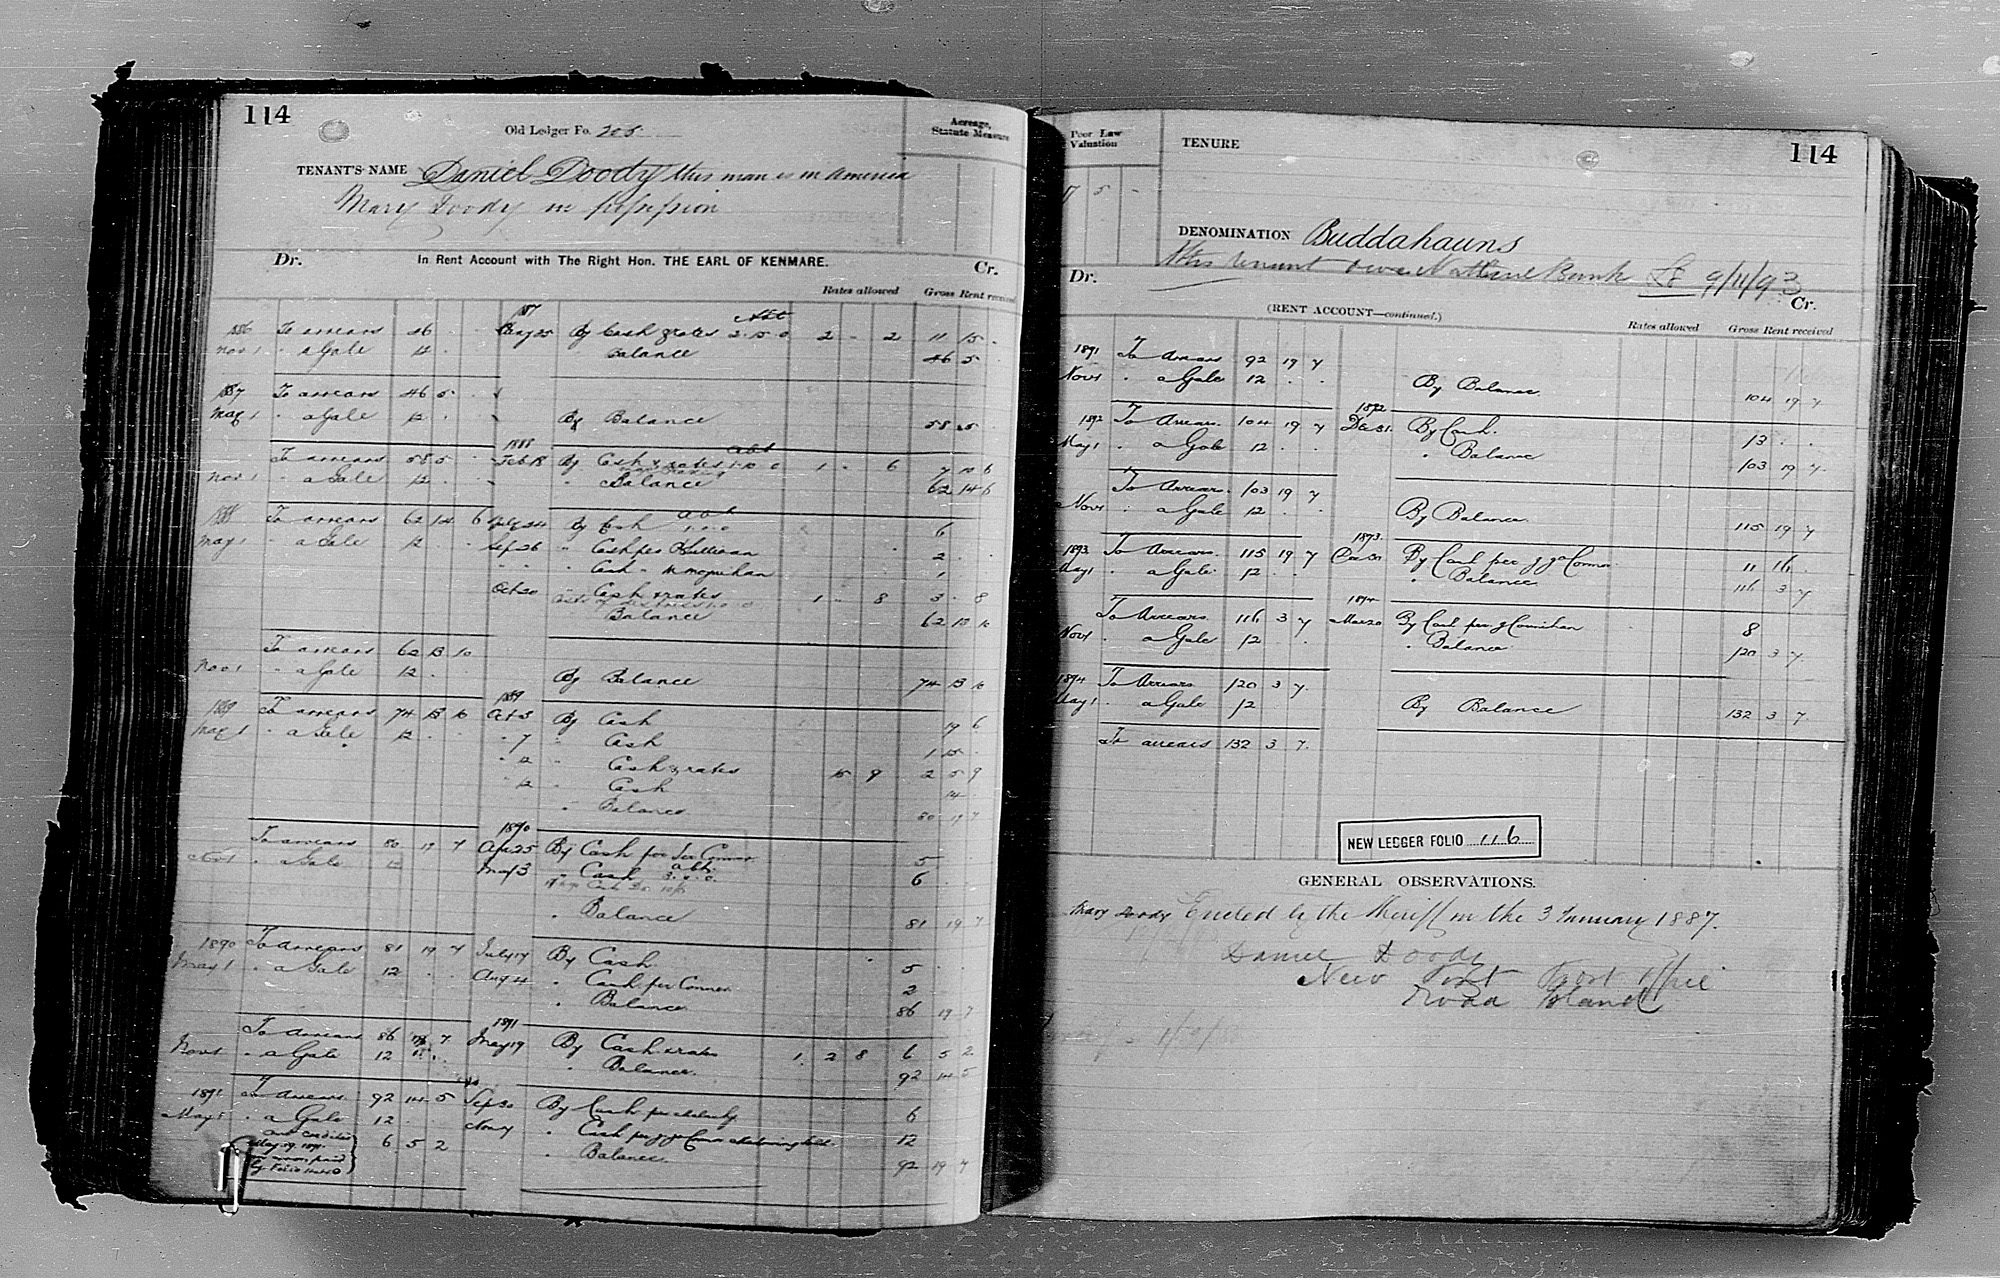 114
Old Ledger Fo. 205
Acreage,
Statute Measure
TENANT'S NAME Daniel Doody this man is in america
Mary Doody in possession
Dr. In Rent Account with The Right Hon. THE EARL OF KENMARE. Cr.
Rates allowed Gross Rent received
1886 To arrears 46 1887 May 25 By Cash & rates Abt 2.15.0 2 - 2 11 15 -
Nov 1 " a Gale 12 Balance 46 5
1887 To arrears 46 5
May 1 " a Gale 12 By Balance 58 5
To arrears 58 5 1888 Feb 18 By Cash & rates abt 1.10.0 1 - 6 7 10 6
Nov 1 " a Gale 12 " Balance 62 14 6
1888 To arrears 62 14 6 24 By Cash abt 1.0.0 6
May 1 " a Gale 12 Sep 26 " Cash per O'Sullivan 2
" Cash " 1
Oct 20 " Cash & rates 1 - 8 3 - 8
Balance 62 13 10
To arrears 62 13 10
Nov 1 " a Gale 12 By Balance 74 13 10
1889 To arrears 74 13 10 1889 Oct 3 By Cash 19 6
May 1 " a Gale 12 " 7 " Cash 1 15
" 12 " Cash & rates 15 9 2 5 9
" 12 " Cash 14
" Balance 80 19 7
To arrears 80 19 7 1890 Apr 25 By Cash per Connor 5
Nov 1 " a Gale 12 May 3 " Cash abt. 3.0.0. 6
" Balance 81 19 7
1890 To arrears 81 19 7 July 17 By Cash 5
May 1 " a Gale 12 Aug 4 " Cash per Connor 2
" Balance 86 19 7
To arrears 86 19 7 1891 May 19 By Cash & rates 1 2 8 6 5 2
Nov 1 " a Gale 12 " Balance 92 14 5
1891 To arrears 92 14 5 Sep 30 By Cash per 6
May 1 " a Gale 12 Nov 7 " Cash per 12
6 5 2 " Balance 92 19 7
May 19 1891
114
Poor Law
Valuation
TENURE
7 5 -
DENOMINATION Buddahauns
This tenant owes National Bank £8 9/11/93
Dr. Cr.
(RENT ACCOUNT—continued.)
Rates allowed Gross Rent received
1891 To Arrears 92 19 7
Nov 1 " a Gale 12 By Balance 104 19 7
1892 To Arrears 104 19 7 1892 Dec 31 By Cash. 13
May 1 " a Gale 12 " Balance 103 19 7
To Arrears 103 19 7
Nov 1 " a Gale 12 By Balance 115 19 7
1893 To Arrears 115 19 7 1893 Dec 30 By Cash per J. O'Connor 11 16
May 1 " a Gale 12 " Balance 116 3 7
To Arrears 116 3 7 1894 Mar 20 By Cash per J Counihan 8
Nov 1 " a Gale 12 " Balance 120 3 7
1894 To Arrears 120 3 7
May 1 " a Gale 12 By Balance 132 3 7
To arrears 132 3 7
NEW LEDGER FOLIO 116
GENERAL OBSERVATIONS.
Mary Doody Evicted by the Sheriff on the 3 January 1887.
Daniel Doody
New Port Post Office
Rhoda Island